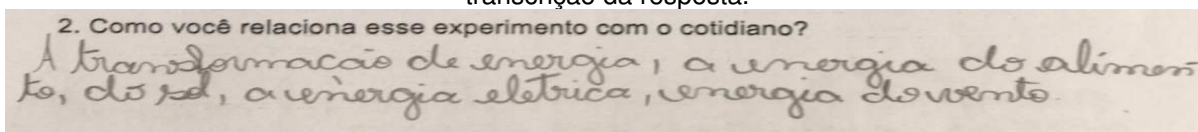 transcrição da resposta.
2. Como você relaciona esse experimento com o cotidiano?
A transformacão de energia, a energia do alimen
to, do sol, a energia eletrica, energia do vento.